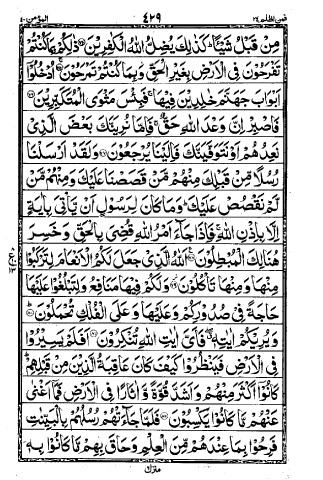 فمن اظلم ٢٤ ٤٢٩ المؤمن ٤٠
مِنْ قَبْلُ شَيْئًا كَذٰلِكَ يُضِلُّ اللّٰهُ الْكٰفِرِيْنَ ذٰلِكُمْ بِمَا كُنْتُمْ
تَفْرَحُوْنَ فِى الْاَرْضِ بِغَيْرِ الْحَقِّ وَبِمَا كُنْتُمْ تَمْرَحُوْنَ اُدْخُلُوْٓا
اَبْوَابَ جَهَنَّمَ خٰلِدِيْنَ فِيْهَا فَبِئْسَ مَثْوَى الْمُتَكَبِّرِيْنَ
فَاصْبِرْ اِنَّ وَعْدَ اللّٰهِ حَقٌّ فَاِمَّا نُرِيَنَّكَ بَعْضَ الَّذِيْ
نَعِدُهُمْ اَوْ نَتَوَفَّيَنَّكَ فَاِلَيْنَا يُرْجَعُوْنَ وَلَقَدْ اَرْسَلْنَا
رُسُلًا مِّنْ قَبْلِكَ مِنْهُمْ مَّنْ قَصَصْنَا عَلَيْكَ وَمِنْهُمْ مَّنْ
لَّمْ نَقْصُصْ عَلَيْكَ وَمَا كَانَ لِرَسُوْلٍ اَنْ يَّأْتِىَ بِاٰيَةٍ
اِلَّا بِاِذْنِ اللّٰهِ فَاِذَا جَآءَ اَمْرُ اللّٰهِ قُضِىَ بِالْحَقِّ وَخَسِرَ
هُنَالِكَ الْمُبْطِلُوْنَ اَللّٰهُ الَّذِيْ جَعَلَ لَكُمُ الْاَنْعَامَ لِتَرْكَبُوْا
مِنْهَا وَمِنْهَا تَأْكُلُوْنَ وَلَكُمْ فِيْهَا مَنَافِعُ وَلِتَبْلُغُوْا عَلَيْهَا
حَاجَةً فِيْ صُدُوْرِكُمْ وَعَلَيْهَا وَعَلَى الْفُلْكِ تُحْمَلُوْنَ
وَيُرِيْكُمْ اٰيٰتِهٖ فَاَىَّ اٰيٰتِ اللّٰهِ تُنْكِرُوْنَ اَفَلَمْ يَسِيْرُوْا
فِى الْاَرْضِ فَيَنْظُرُوْا كَيْفَ كَانَ عَاقِبَةُ الَّذِيْنَ مِنْ قَبْلِهِمْ
كَانُوْٓا اَكْثَرَ مِنْهُمْ وَاَشَدَّ قُوَّةً وَّاٰثَارًا فِى الْاَرْضِ فَمَآ اَغْنٰى
عَنْهُمْ مَّا كَانُوْا يَكْسِبُوْنَ فَلَمَّا جَآءَتْهُمْ رُسُلُهُمْ بِالْبَيِّنٰتِ
فَرِحُوْا بِمَا عِنْدَهُمْ مِّنَ الْعِلْمِ وَحَاقَ بِهِمْ مَّا كَانُوْا بِهٖ
منزل